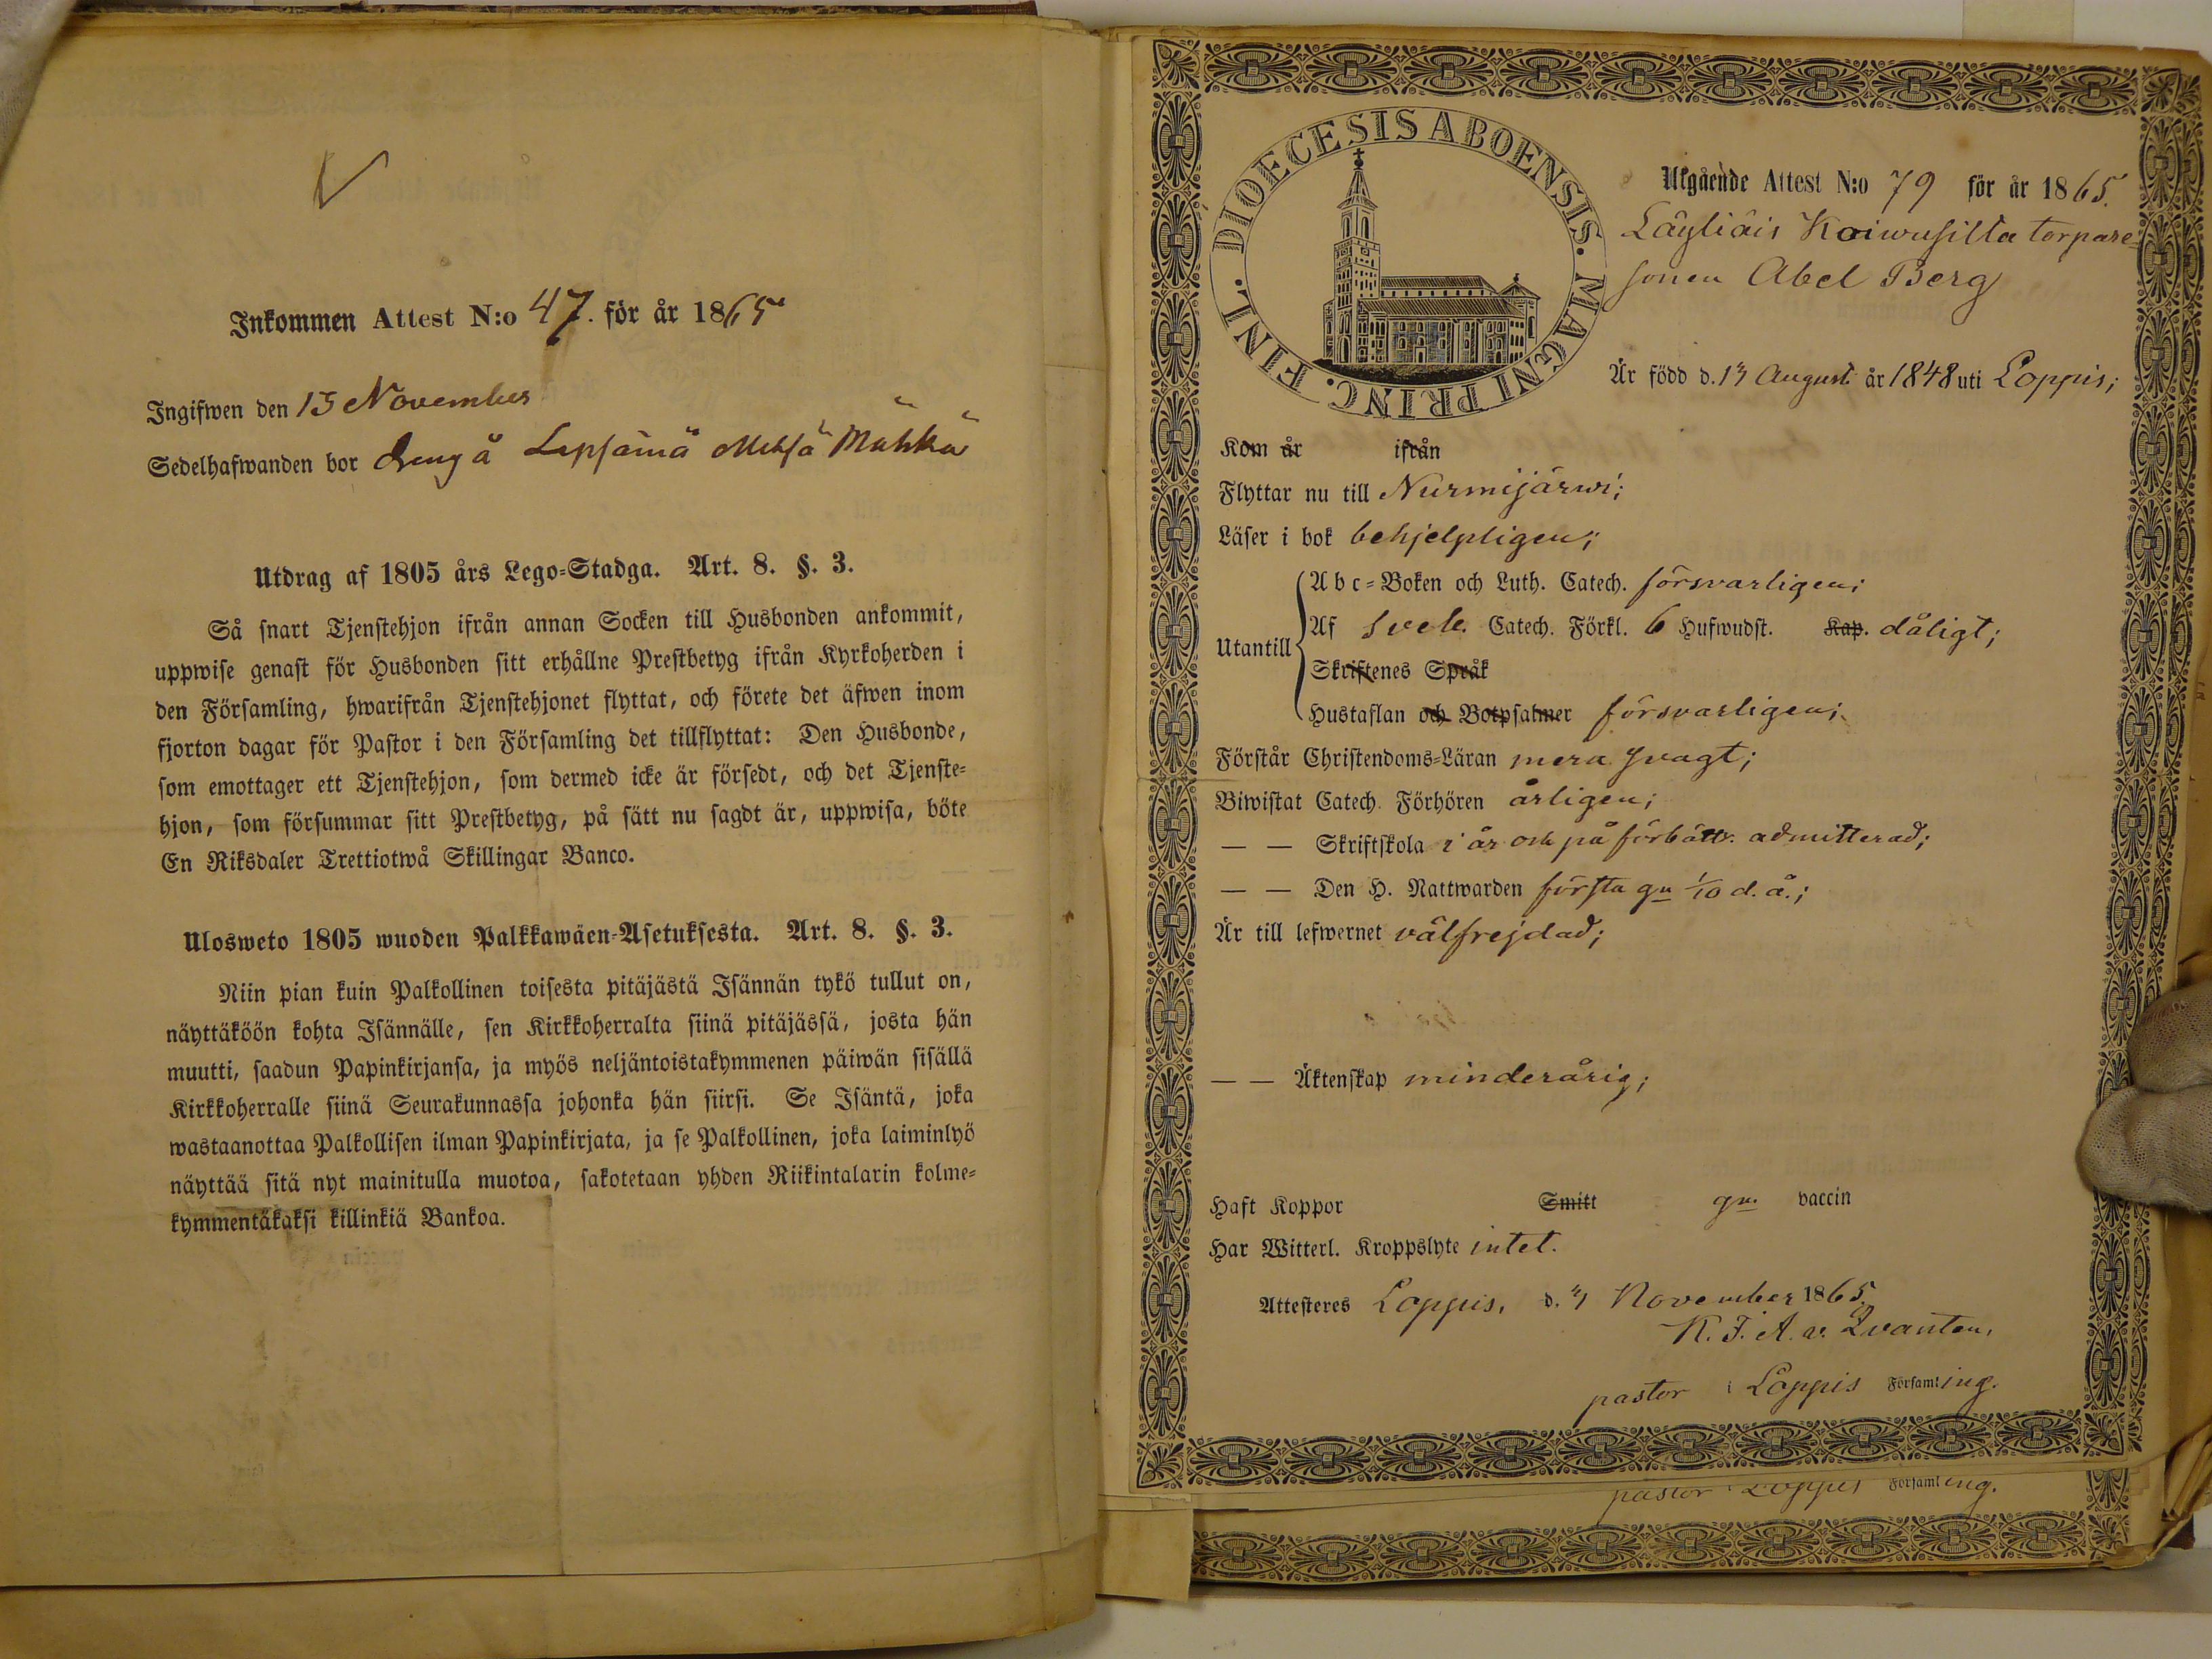 Inkommen Attest N:o 47. för år 1865
Ingifwen den 13 November
Sedelhafwanden bor dreng å Lepsämä Mehsä Mähkä
Utdrag af 1805 års Lego-Stadga. Art. 8. §. 3.
Så snart Tjenstehjon ifrån annan Socken till Husbonden ankommit,
uppwise genast för Husbonden sitt erhållne Prestbetyg ifrån Kyrkoherden i
den Församling, hwarifrån Tjenstehjonet flyttat, och förete det äfwen inom
fjorton dagar för Pastor i den Församling det tillflyttat: Den Husbonde,
som emottager ett Tjenstehjon, som dermed icke är försedt, och det Tjenste-
hjon, som försummar sitt Prestbetyg, på sätt nu sagdt är, uppwisa, böte
En Riksdaler Trettiotwå Skillingar Banco.
Ulosweto 1805 wuoden Palkkawäen-Asetuksesta. Art. 8. §. 3.
Niin pian kuin Palkollinen toisesta pitäjästä Isännän tykö tullut on,
näyttäköön kohta Isännälle, sen Kirkkoherralta siinä pitäjässä, josta hän
muutti, saadun Papinkirjansa, ja myös neljäntoistakymmenen päiwän sisällä
Kirkkoherralle siinä Seurakunnassa johonka hän siirsi. Se Isäntä, joka
wastaanottaa Palkollisen ilman Papinkirjata, ja se Palkollinen, joka laiminlyö
näyttää sitä nyt mainitulla muotoa, sakotetaan yhden Riikintalarin kolme-
kymmentäkaksi killinkiä Bankoa.
DIOECESIS ABOENSIS. MAGNI PRINC. FINL.
Utgående Attest N:o 79 för år 1865.
Läyliäis Koiwusilta torpare-
sonen Abel Berg
Är född d. 13 August. år 1848 uti Loppis;
Kom år ifrån
Flyttar nu till Nurmijärwi;
Läser i bok behjelpligen;
Utantill
Abc-Boken och Luth. Catech. försvarligen;
Af Sveb. Catech. Förkl. 6 Hufwudst. Kap. dåligt;
Skriftenes Språk
Hustaflan och Botpsalmer försvarligen;
Förstår Christendoms-Läran mera svagt;
Biwistat Catech. Förhören årligen;
— — Skriftskola i år och på förbättr. admitterad;
— — Den H. Nattwarden första gn 1/10 d. å.;
Är till lefwernet välfrejdad;
— — Äktenskap minderårig;
Haft Koppor Smitt gn. vaccin
Har Witterl. Kroppslyte intet.
Attesteres Loppis, d. November 1865.
K. F. A. v. Qvanten,
pastor i Loppis Församling.
pastor i Loppis Församling.